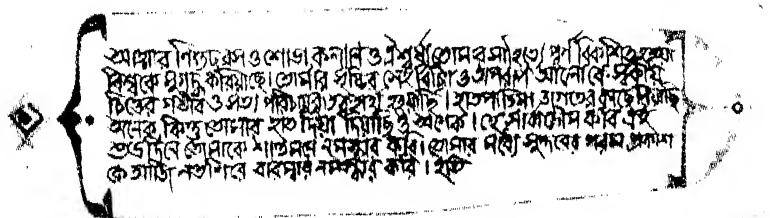 আত্মার নিগূঢ় রস ও শোভা কল্যাণ ও ঐশ্বর্য্য তোমার সাহিত্যে পূর্ণ বিকশিত হইয়া
বিশ্বকে মুগ্ধ করিয়াছে। তোমার সৃষ্টির সেই বিচিত্র ও অপরূপ আলোকে স্বকীয়
চিত্তের গভীর ও সত্য পরিচয়ে কৃতকৃতার্থ হইয়াছি। হাত পাতিয়া জগতের কাছে নিয়াছি
অনেক কিন্তু তোমার হাত দিয়া দিয়াছি ও অনেক। হে সার্বভৌম কবি এই
শুভদিনে তোমাকে শান্তমনে নমস্কার করি। তোমার মধ্যে সুন্দরের পরম প্রকাশ
কে আজি নতশিরে বারম্বার নমস্কার করি। ইতি